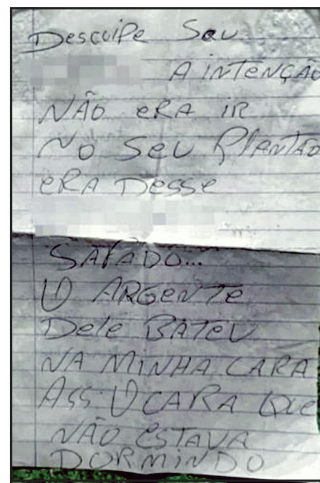 Desculpe Seu
A INTENÇÃO
NÃO eRA IR
NO SeU PlANTÃO
eRA Desse
SAFADO...
O ARGENTE
Dele BATeU
NA MINHA CARA
ASS: O CARA QUe
NÃO eSTAVA
DORMINDO